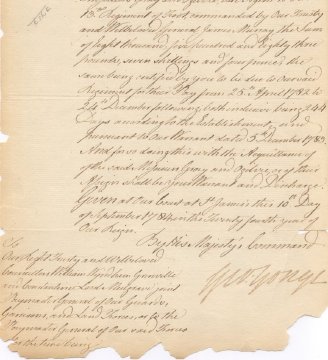 13th Regiment of Foot commanded by Our Trusty
and Welbeloved General James Murray the Sum
of Eight thousand, five hundred and Eighty three
pounds, seven shillings and four pence, the
same being certified by you to be due to our said
Regiment for their Pay from 25th April 1782 to
24th December following, both inclusive being 244
Days according to the Establishment, and
pursuant to Our Warrant dated 3d December 1783.
And for so doing this with the Acquittance
of the said Messieurs Gray and Ogilvie, or of their
Assigns shall be your Warrant and Discharge.
Given at Our Court at St James's this 10th Day
of September 1784 in the Twenty fourth year of
Our Reign.
By His Majesty's Command
Geo Yonge
To
Our Right Trusty and Welbeloved
Councillors William Wyndham Grenville
and Constantine Lord Mulgrave, joint
Paymaster General of Our Guards,
Garrisons, and Land Forces, or to the
Paymaster General of Our said Forces
for the time being